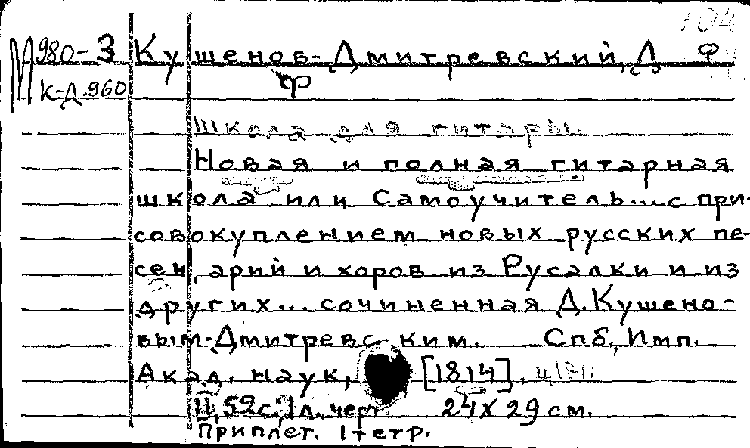 104
М980-3 Кушенов-Дмитревский, Д. Ф.
К-Д 960 Ф
Школа для гитары.
Новая и полная гитарная
школа или Самоучитель... с при-
совокуплением новых русских пе-
сен, арий и хоров из Русалки и из
других... сочиненная Д. Кушено-
вым-Дмитревским. Спб., Имп.
Акад. наук, [1814].
II, 52 с. 1 л. черт. 24 x 29 см.
Приплет. 1 тетр.